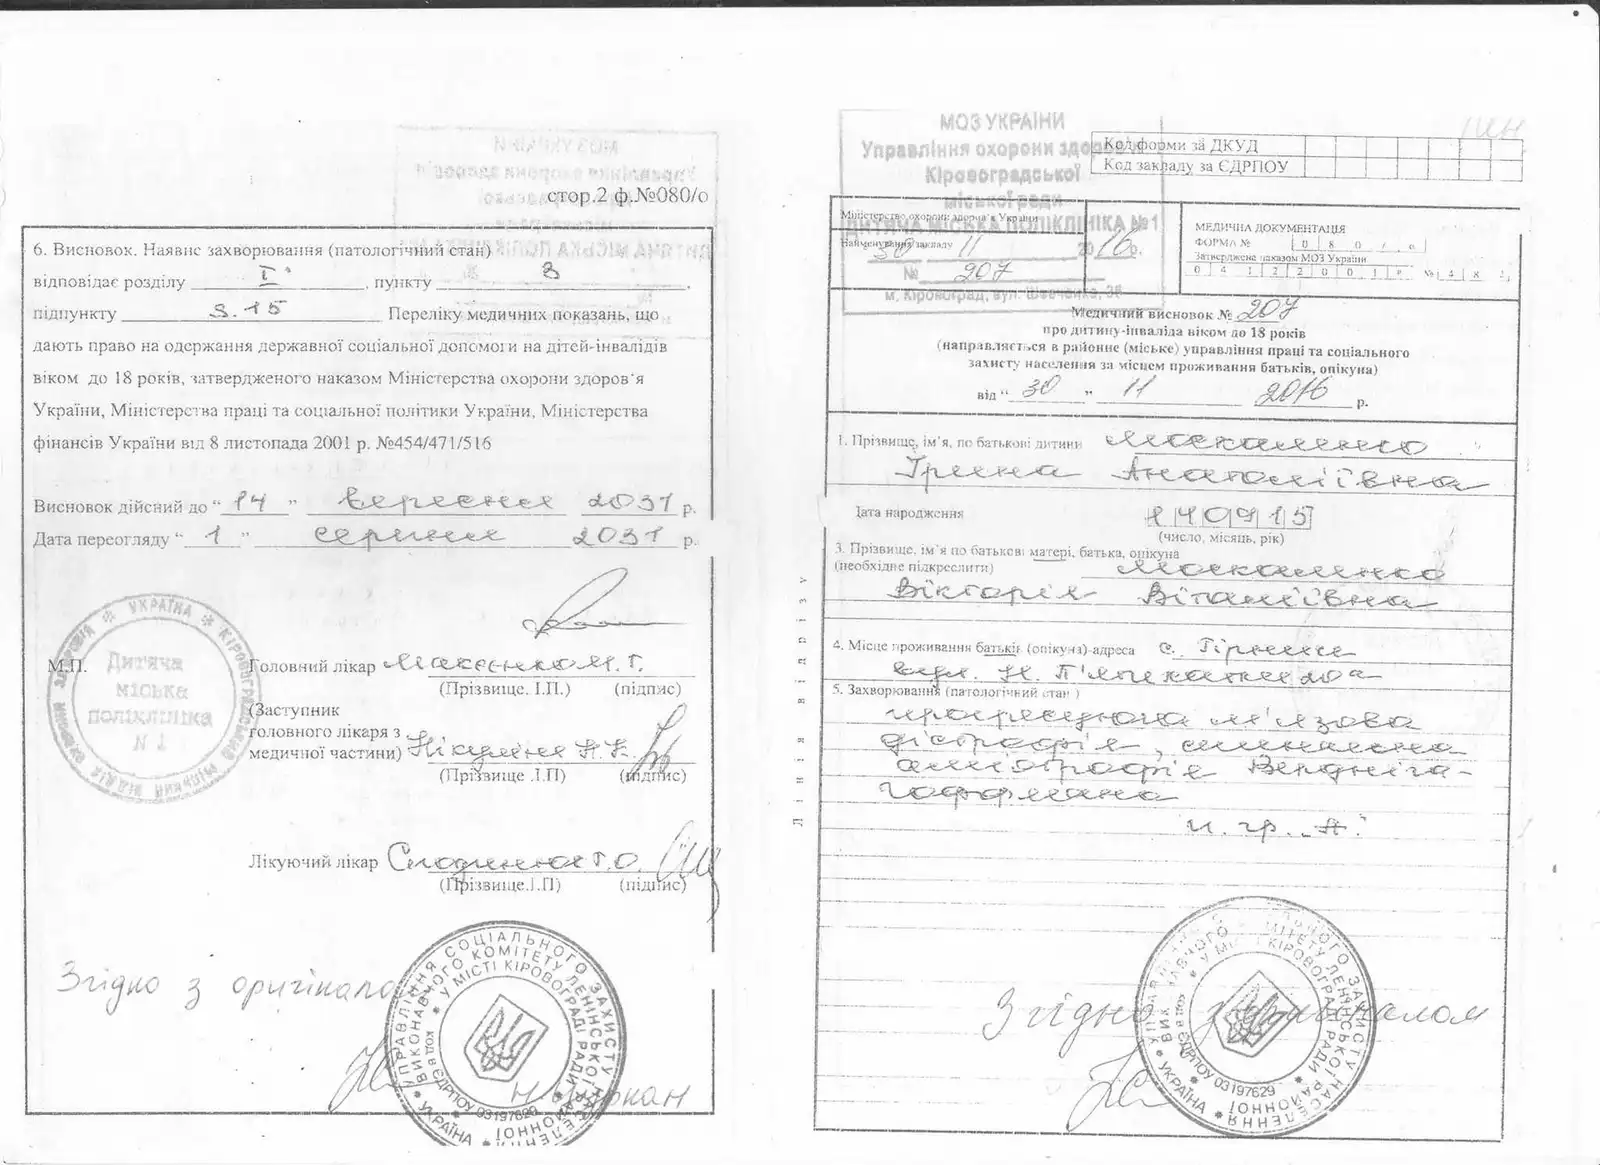 стор.2 ф.№080/о
6. Висновок. Наявне захворювання (патологічний стан)
відповідає розділу I , пункту 3 ,
підпункту 3.15 Переліку медичних показань, що
дають право на одержання державної соціальної допомоги на дітей-інвалідів
віком до 18 років, затвердженого наказом Міністерства охорони здоров'я
України, Міністерства праці та соціальної політики України, Міністерства
фінансів України від 8 листопада 2001 р. №454/471/516
Висновок дійсний до “ 14 ” вересня 2031 р.
Дата переогляду “ 1 ” серпня 2031 р.
М.П.
Дитяча
міська
поліклініка
№ 1
Головний лікар М.Г.
(Прізвище. І.П.) (підпис)
(Заступник
головного лікаря з
медичної частини)
(Прізвище .І.П) (підпис)
Лікуючий лікар
(Прізвище.І.П) (підпис)
Згідно з оригіналом
УПРАВЛІННЯ СОЦІАЛЬНОГО ЗАХИСТУ НАСЕЛЕННЯ
ВИКОНАВЧОГО КОМІТЕТУ ЛЕНІНСЬКОЇ РАЙОННОЇ
У МІСТІ КІРОВОГРАДІ РАДИ
КОД в ЄДРПОУ 03197629
УКРАЇНА
МОЗ УКРАЇНИ
Управління охорони здоров'я
Кіровоградської
міської ради
ДИТЯЧА МІСЬКА ПОЛІКЛІНІКА №1
30 11 2016р.
№ 207
м. Кіровоград, вул. Шевченка, 36
Код форми за ДКУД
Код закладу за ЄДРПОУ
Міністерство охорони здоров'я України
Найменування закладу
МЕДИЧНА ДОКУМЕНТАЦІЯ
ФОРМА № 0 8 0 / о
Затверджене наказом МОЗ України
0 4 1 2 2 0 0 1 р №
Медичний висновок № 207
про дитину-інваліда віком до 18 років
(направляється в районне (міське) управління праці та соціального
захисту населення за місцем проживання батьків, опікуна)
від “ 30 ” 11 2016 р.
1. Прізвище, ім'я, по батькові дитини Москаленко
Ірина Анатоліївна
Дата народження 140915
(число, місяць, рік)
3. Прізвище, ім'я по батькові матері, батька, опікуна
(необхідне підкреслити) Москаленко
Вікторія Віталіївна
4. Місце проживання батьків (опікуна)-адреса с. Гірниче
вул.
5. Захворювання (патологічний стан )
прогресуюча м'язова
дістрофія, спинальна
аміотрофія Вердніга-
Гоффмана
п. гр. „А"
Лінія відрізу
Згідно з оригіналом
УКРАЇНА
ЄДРПОУ 03197629